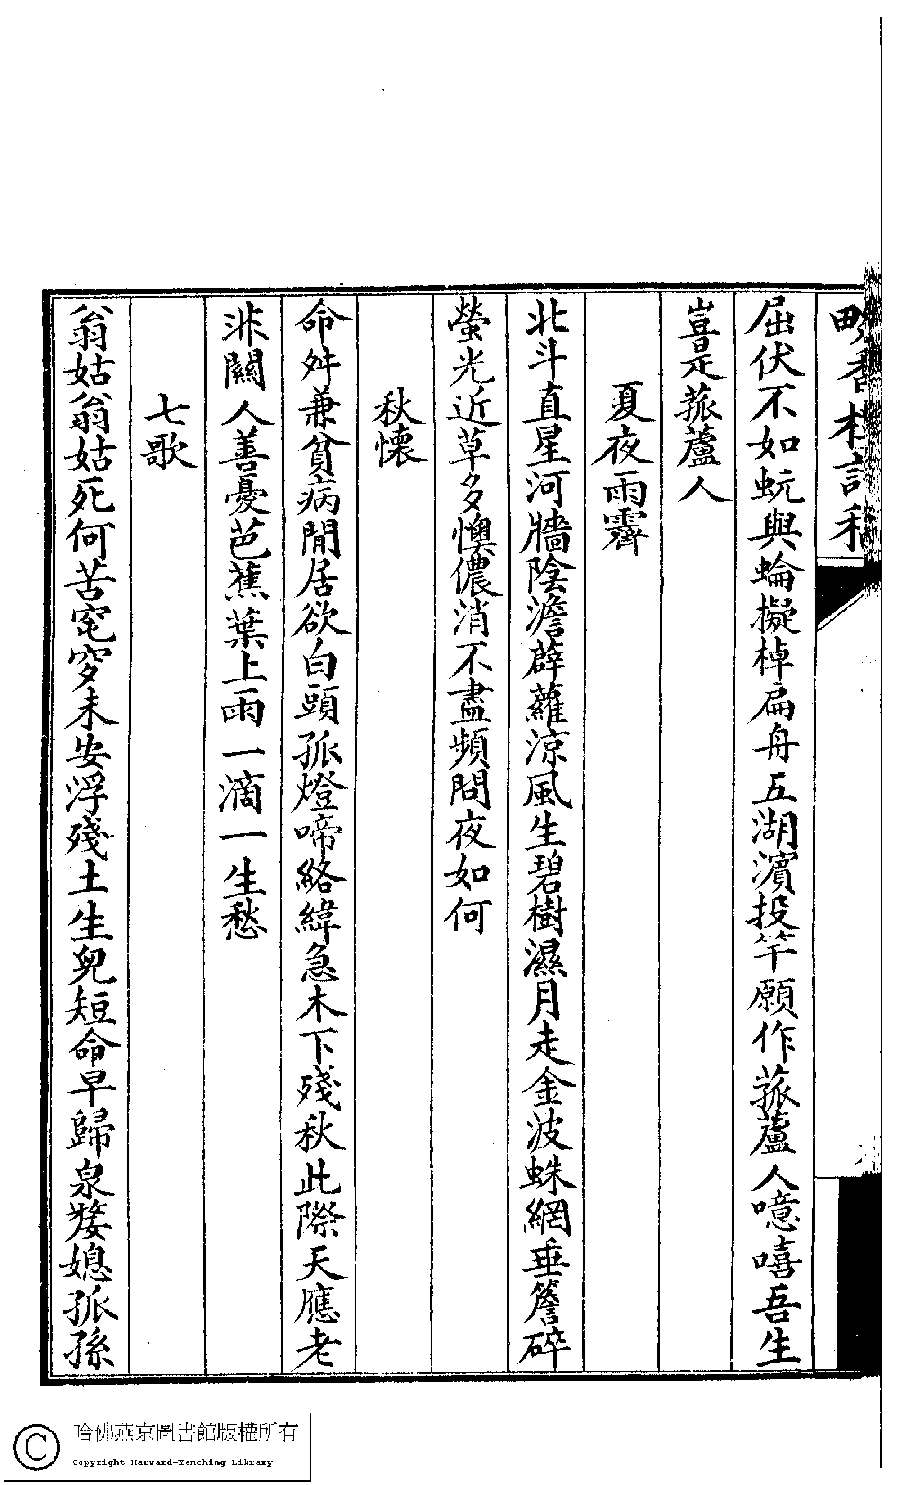 屈伏不如蚖與蜦擬棹扁舟五湖濵投竿願作菰蘆人噫嘻吾生
豈是菰蘆人
夏夜雨霽
北斗直星河牆陰澹薜蘿涼風生碧樹濕月走金波蛛網垂簷碎
螢光近草多懊儂消不盡頻問夜如何
秋懷
命舛兼貧病閒居欲白頭孤燈啼絡緯急木下殘秋此際天應老
非關人善憂芭蕉葉上雨一滴一生愁
七歌
翁姑翁姑死何苦窀穸未安浮殘土生兒短命早歸泉嫠媳孤孫
哈佛燕京圖書館版權所有
Copyright Harvard-Yenching Library